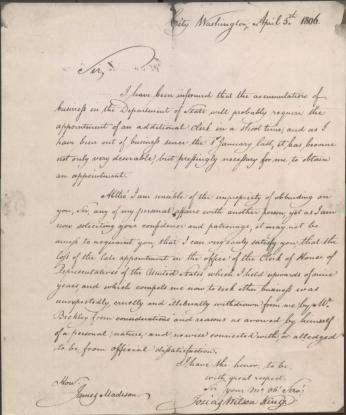 City Washington, April 3th 1806.
Sir,
I have been informed that the accumulation of
business in the Department of State will probably require the
appointment of an additional Clerk in a short time, and as I
have been out of business since the 1st January last, it has become
not only very desirable, but pressingly necessary for me to obtain
an appointment.
Altho' I am sensible of the impropriety of obtruding on
you, Sir, any of my personal affairs with another person, yet as I am
now soliciting your confidence and patronage, it may not be
amiss to acquaint you, that I can very easily satisfy you that the
loss of the late appointment in the office of the Clerk of House of
Representatives of the United States which I held upwards of nine
years and which compels me now to seek other business was
unexpectedly, cruelly and illiberally withdrawn from me by Mr.
Beckley from considerations and reasons as avowed by himself
of a personal nature, and no wise connected with, or alledged
to be from official dissatisfaction.
I have the honor, to be,
with great respect,
Sir, your Mo. Ob. Serv.
Josias Wilson King
Hon.
James Madison